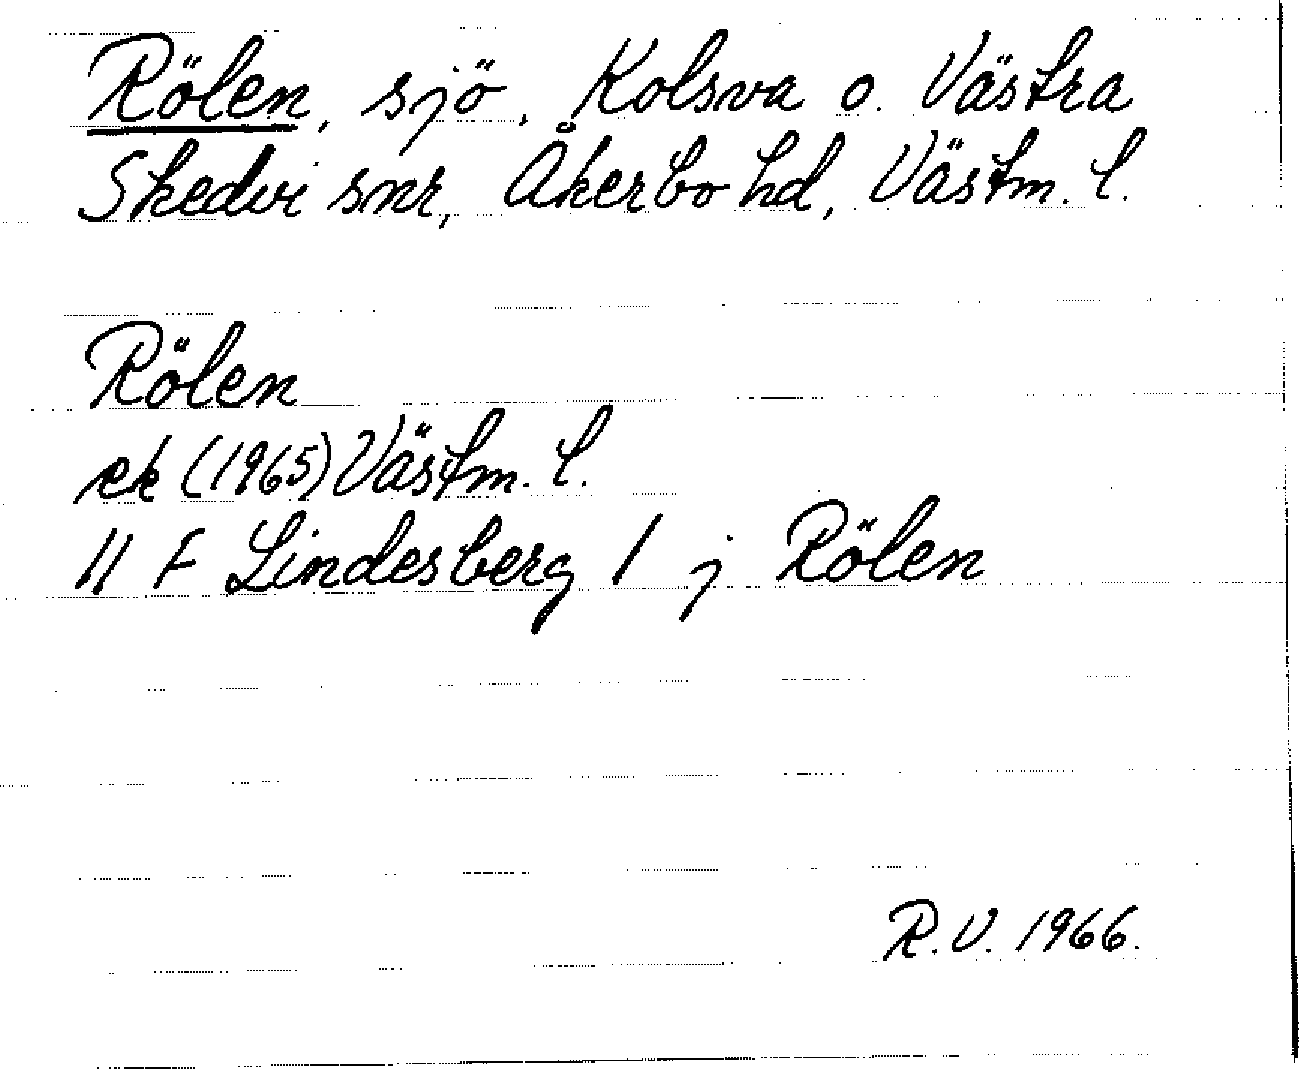 Rölen, sjö, Kolsva o. Västra
Skedvi snr, Åkerbo hd, Västm. l.
Rölen
ek (1965) Västm. l.
11 F Lindesberg 1 j Rölen
R.V. 1966.